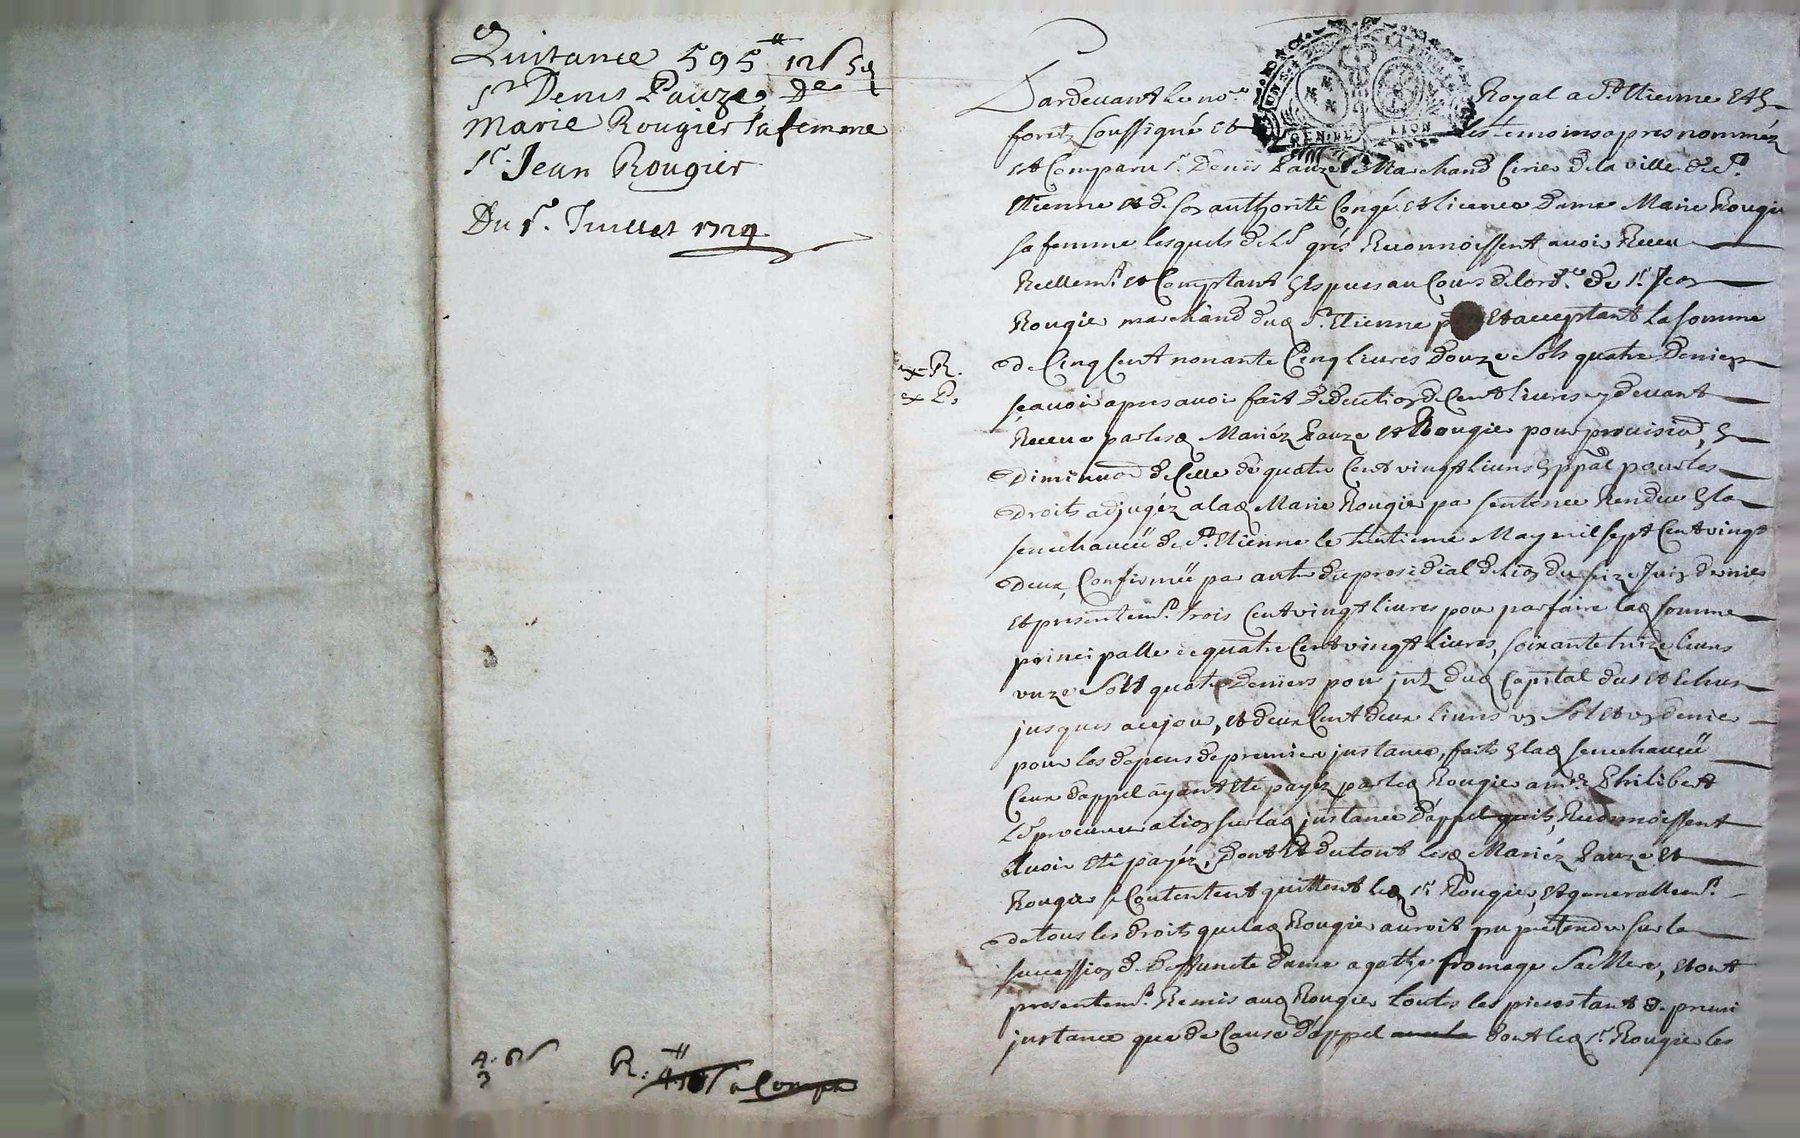 Quitance 595 ₶ 12 s 5 d
Sr Denis Pauze De
Marie Rougier sa femme
Sr Jean Rougier
Du 1r. Juillet 1724
A. 6 s
3
R: a Compte
x R.
x P.
GEN. DE LION
Pardevant le nore Royal a St Etienne et en
foretz soussigné et les témoins apres nommez
est Comparu sr. Denis Pauze Marchand Cirier de la ville de St
Etienne et de son authorité Congé et licence Dame Marie Rougier
sa femme lesquels de Ld grés Reconnoissent avoir Receu
Reellemt et Comptant en especes au Cours de lordce de sr Jean
Rougier marchand dud St Etienne et acceptant la somme
de Cinq Cent nonante Cinq livres douze sols quatre Deniers
sçavoir apres avoir fait Deduction de Cent livres cy devant
Receue par lesd Mariéz Pauze et Rougier pour provision, en
Diminuon de Celle de quatre Cent vingt livres en ppal pour les
Droits adjugéz a lad Marie Rougier par sentence Rendue en la
senechaucée de St Etienne le trentieme May mil sept Cent vingt
Deux, Confirmée par autre du presidial de Lion du seize Juin dernier
et presentemt trois Cent vingt livres pour parfaire lad somme
principalle de quatre Cent vingt livres, soixante treize livres
unze sols quatre Deniers pour jnt dud Capital dus et Echus
jusques a ce jour, et deux Cent deux livres un sol et un denier
pour les depens de premiere jnstance, faits en lad senechaucée
Ceux dappel ayant eté payéz par led Rougier a Me Philibert
Ld procureur sur lad jnstance Dappel quils Reconnoissent
Avoir eté payéz, Dont et du tout lesd Mariéz Pauze et
Rougier se Contentent quittent led sr Rougier, et generallemt
de tous les droits que lad Rougier auroit pu prétendre sur la
succession de Deffuncte dame agathe fromage sa Mere, et ont
presentemt Remis aud Rougier toutes les pieces tant de premi
jnstance que de Cause dappel dont led sr Rougier les